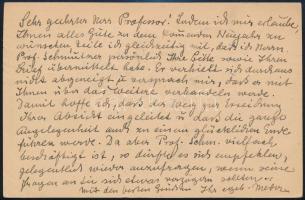 Sehr geehrter Herr Professor! Indem ich mir erlaube,
Ihnen alles Gute zu dem kommenden Neujahr zu
wünschen teile ich gleichzeitig mit, dass ich Herrn
Prof. Schmutzer persönlich Ihre Bitte sowie Ihren
Brief übermittelt habe. Er verhielt sich durchaus
nicht abgeneigt u. versprach mir, dass er mit
Ihnen über das Weitere verhandeln werde.
Damit hoffe ich, dass der Weg zur Erreichung
Ihrer Absicht eingeleitet u. dass die ganze
Angelegenheit auch zu einem glücklichen Ende
führen werde. Da aber Prof. Schm. vielfach
beschäftigt ist, so dürfte es sich empfehlen,
gelegentlich wieder anzufragen, wenn seine
Fragen an Sie sich etwas verzögern sollten.
Mit den besten Grüßen Ihr ergeb.